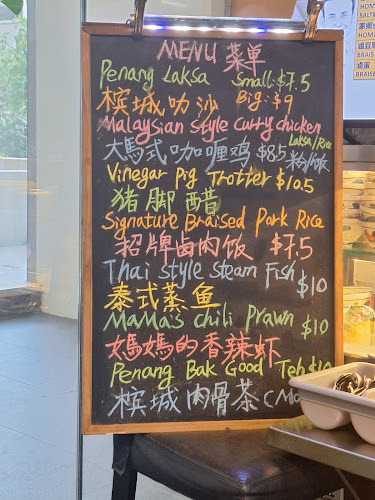 MENU 菜单
Penang Laksa Small $7.5
槟城叻沙 Big: $9
Malaysian style curry chicken
大馬式咖喱鸡 $8.5 Laksa/Rice
粉/饭
Vinegar Pig Trotter $10.5
猪脚醋
Signature Braised Pork Rice
招牌卤肉饭 $7.5
Thai style Steam Fish $10
泰式蒸鱼
MaMa's chili Prawn $10
媽媽的香辣虾
Penang Bak Good Teh $10
槟城肉骨茶
HOM
SALT
HOMA
BRAIS
卤蛋
BRAISE